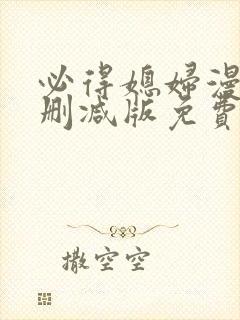 必得媳妇漫
删减版免費
撒空空